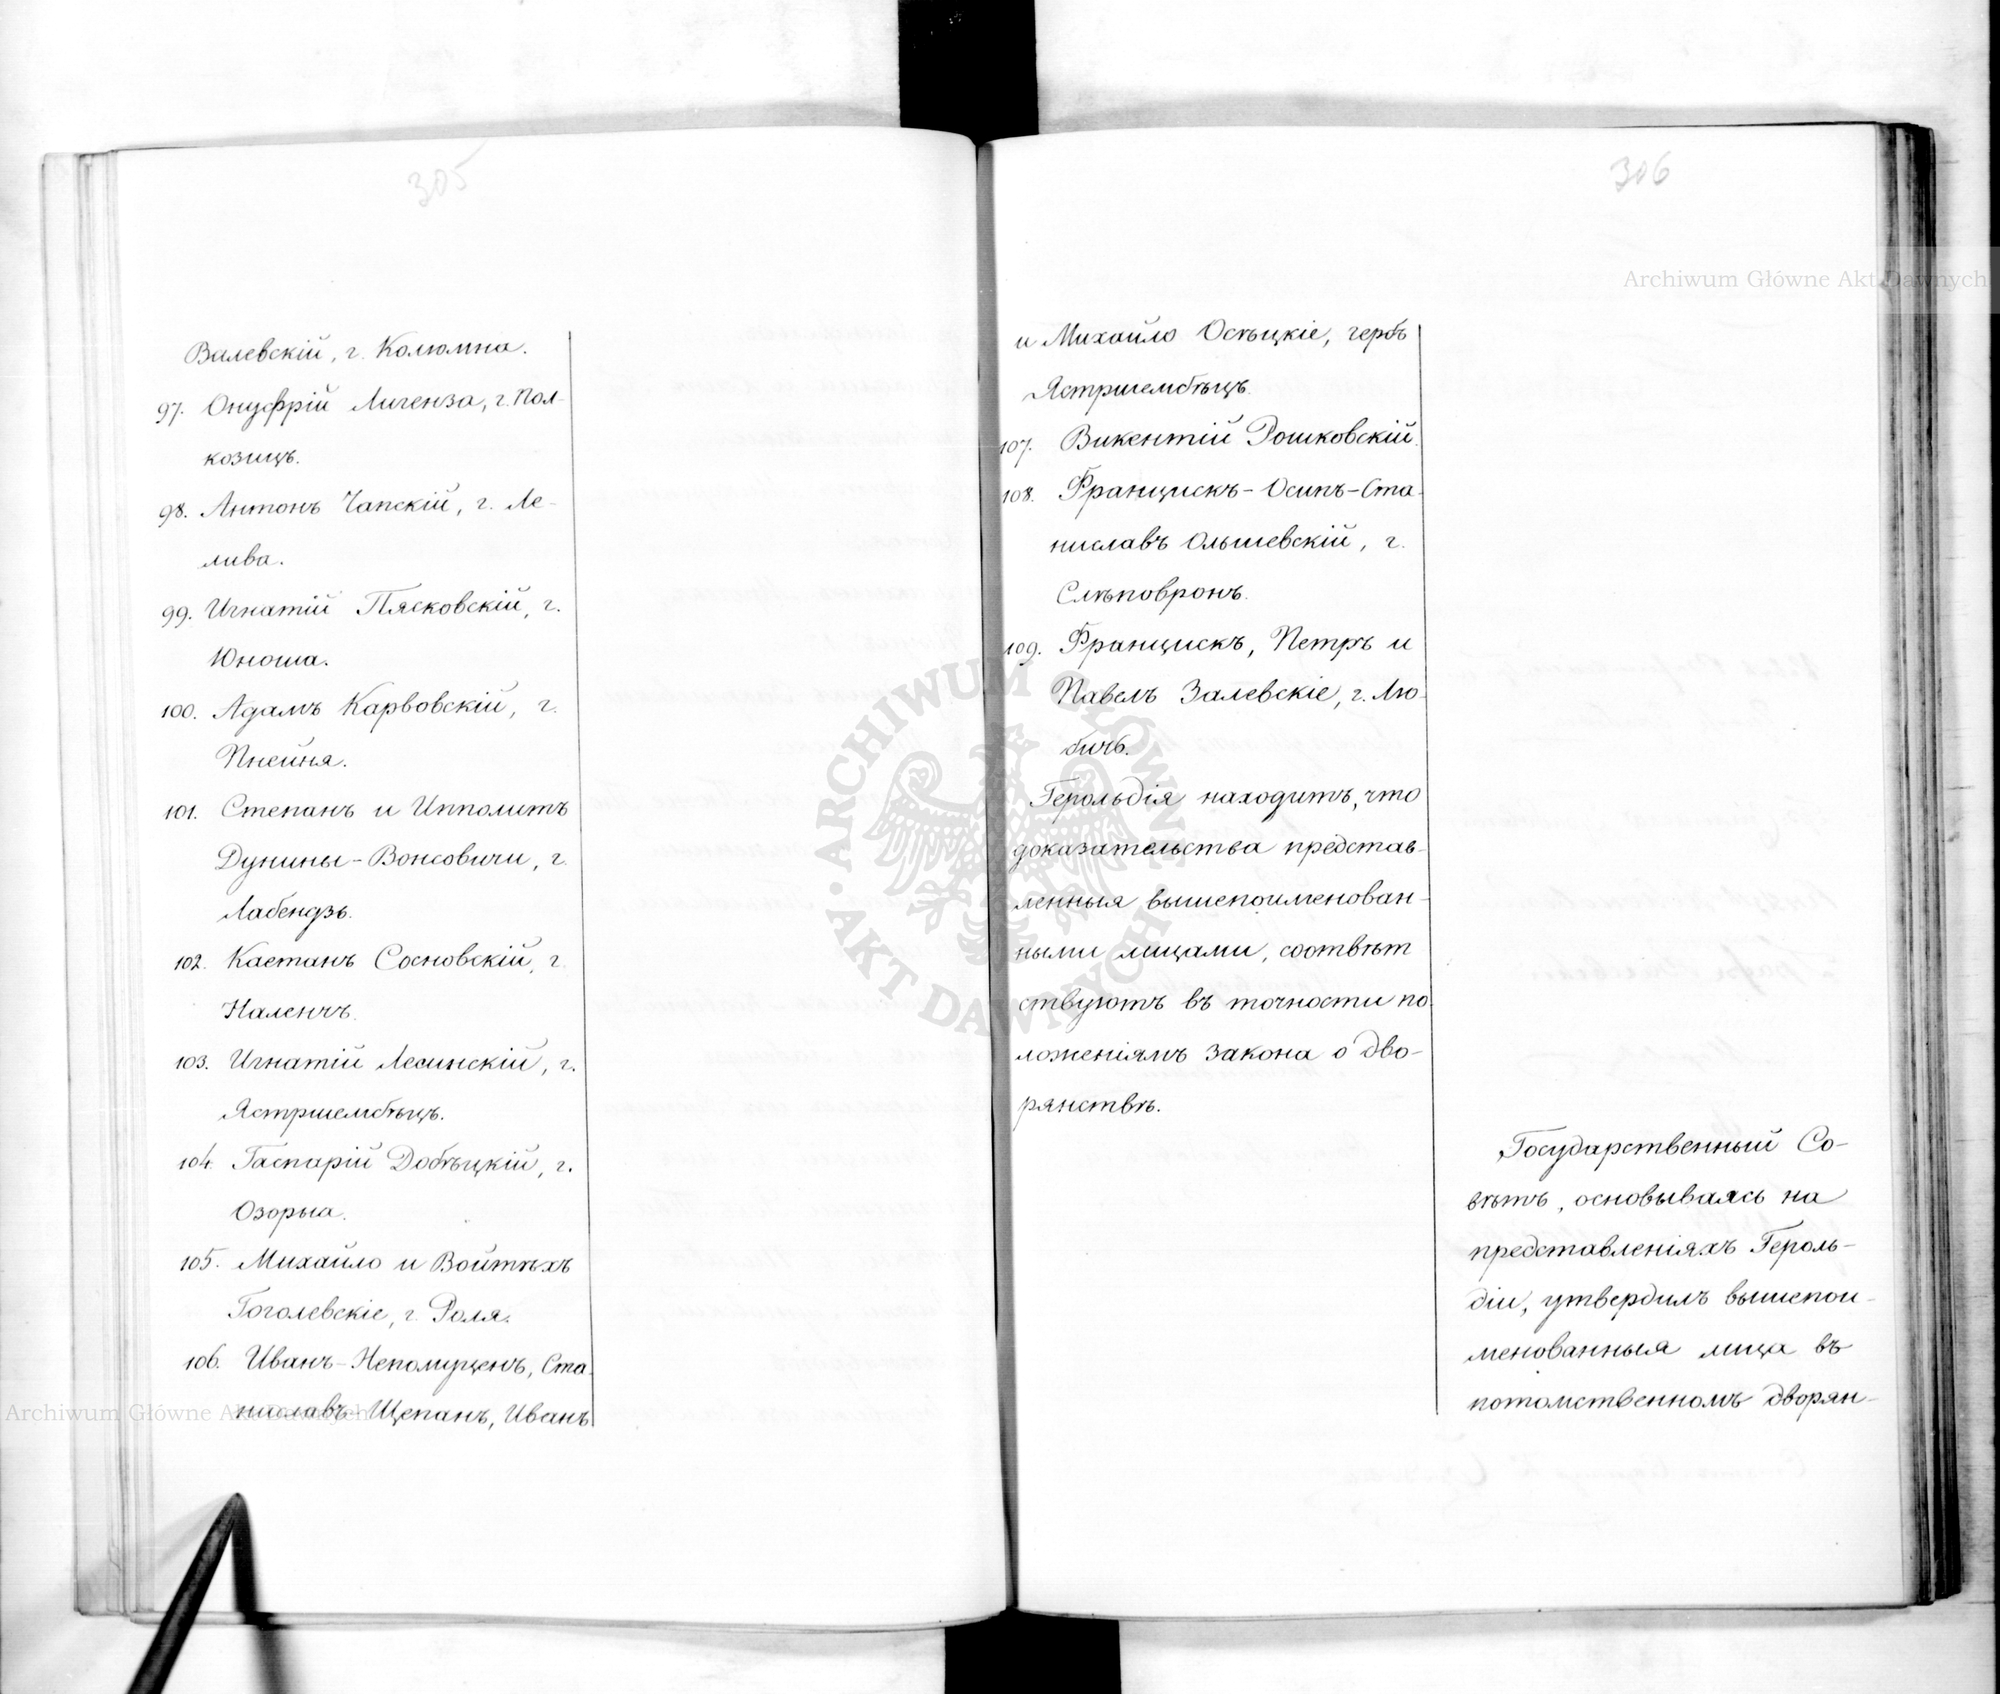 305
Валевскій, г. Колюмна.
97. Онуфрій Лигенза, г. Пол-
козицъ.
98. Антонъ Чапскій, г. Ле-
лива.
99. Игнатій Пясковскій, г.
Юноша.
100. Адамъ Карвовскій, г.
Пнейня.
101. Степанъ и Ипполитъ
Дунины-Вонсовичи, г.
Лабендзь.
102. Каетанъ Сосновскій, г.
Наленчъ.
103. Игнатій Лесинскій, г.
Ястршембѣцъ.
104. Гаспарій Добѣцкій, г.
Озорыа.
105. Михайло и Войтѣхъ
Гоголевскіе, г. Роля.
106. Иванъ-Непомуценъ, Ста-
ниславъ-Щепанъ, Иванъ
306
и Михайло Осѣцкіе, гербъ
Ястршембѣцъ.
107. Викентій Рошковскій.
108. Францискъ-Осипъ-Ста-
ниславъ Ольшевскій, г.
Слѣповронъ.
109. Францискъ, Петръ и
Павелъ Залевскіе, г. Лю-
бичъ.
Герольдія находитъ, что
доказательства представ-
ленныя вышепоименован-
ными лицами, соотвѣт
ствуютъ въ точности по
ложеніямъ закона о дво-
рянствѣ.
Государственный Со-
вѣтъ, основываясь на
представленіяхъ Героль-
діи, утвердилъ вышепои-
менованныя лица въ
потомственномъ дворян-
Archiwum Główne Akt Dawnych
ARCHIWUM GŁÓWNE • AKT DAWNYCH •
Archiwum Główne Akt Dawnych